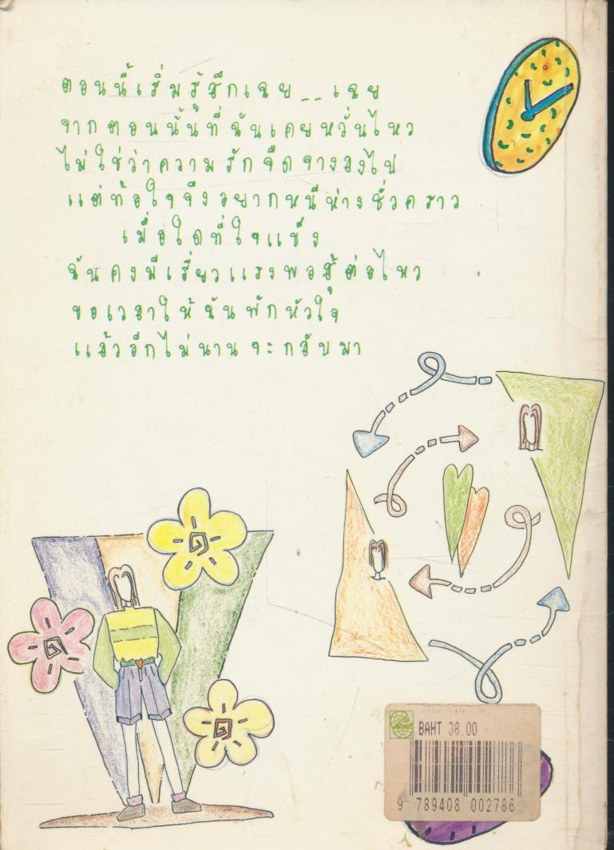 ตอนนี้เริ่มรู้สึกเฉย__เฉย
จากตอนนั้นที่ฉันเคยหวั่นไหว
ไม่ใช่ว่าความรักจืดจางลงไป
แต่ท้อใจจึงอยากหนีห่างชั่วคราว
เมื่อใดที่ใจแข็ง
ฉันคงมีเรี่ยวแรงพอสู้ต่อไหว
ขอเวลาให้ฉันพักหัวใจ
แล้วอีกไม่นานจะกลับมา
BAHT 38.00
9 789408 002786